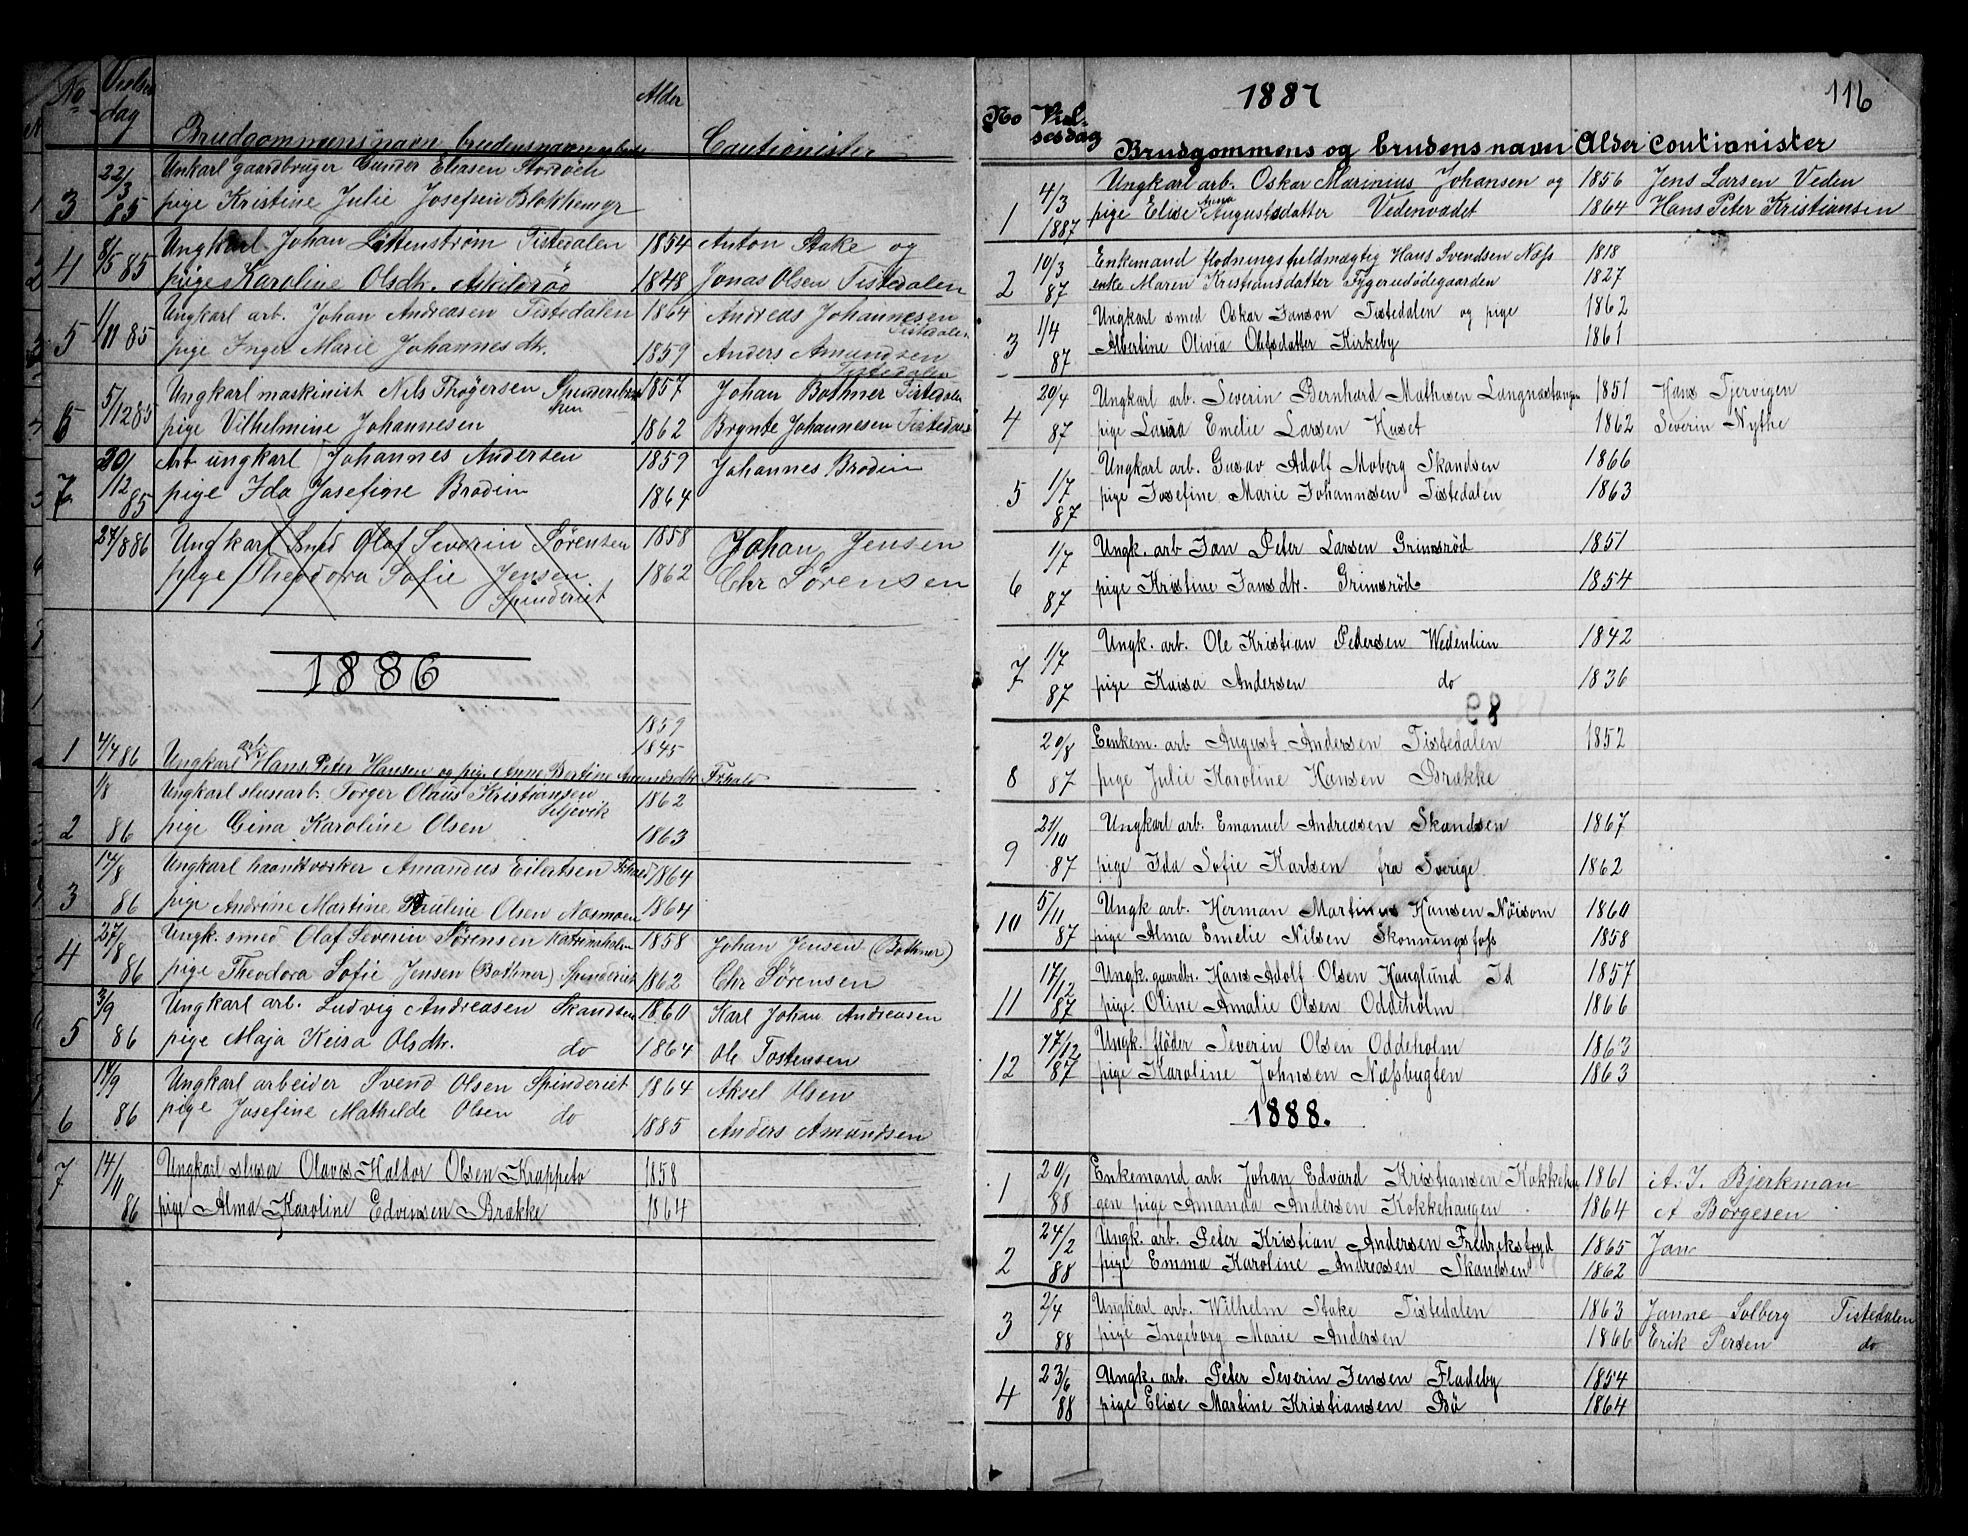 No Vielses dag Brudgommens navn, brudens navn Alder Cautionister
22/3 Unkarl gaardbruger Gunder Eliasen
3 85 pige Kristine Julie Josefsen Blokkemyr
8/5 Ungkarl Johan Littenstrøm Tistedalen 1854 Anton Stake og
4 85 pige Karoline Olsdtr. Askilsrød 1848 Jonas Olsen Tistedalen
1/11 Ungkarl arb. Johan Andreasen Tistedalen 1864 Andreas Johannesen
Tistedalen
5 85 pige Inger Marie Johannesdtr. 1859 Anders Amundsen
Tistedalen
5/12 85 Ungkarl maskinist Nils Thøgersen 1857 Johan Bothner Tistedalen
6 pige Vilhelmine Johannesen 1862 Brynte Johannesen Tistedalen
20/12 Arb ungkarl Johannes Andersen 1859 Johannes Brodin
7 85 pige Ida Josefine Brodin 1864
27/8 86 Ungkarl Smed Olaf Severin Sørensen 1858 Johan Jensen
pige Theodora Sofie Jensen 1862 Chr Sørensen
Spinderiet
1886
1859
1845
1 4/4 86 Ungkarl arb. Hans Peter Hansen og pige Anne Bertine Amundsdtr
1/8 Ungkarl slusarb. Torger Olaus Kristiansen 1862
Siljevik
2 86 pige Gina Karoline Olsen 1863
14/8 Ungkarl haandtværker Amandus Eilertsen 1864
3 86 pige Andrine Martine Pauline Olsen Næsmoen 1864
27/8 Ungk. smed Olaf Severin Sørensen Katrineholm 1858 Johan Jensen (Bothner)
4 86 pige Theodora Sofie Jensen (Bothner) Spinderiet 1862 Chr Sørensen
3/9 Ungkarl arb. Ludvig Andreasen Skandsen 1860 Karl Johan Andreasen
5 86 pige Maja Keisa Olsdtr. do 1864 Ole Tostensen
14/9 Ungkarl arbeider Svend Olsen Spinderiet 1864 Aksel Olsen
6 86 pige Josefine Mathilde Olsen do 1885 Anders Amundsen
7 14/11 Ungkarl sluser Olaves Haldor Olsen Krappeto 1858
86 pige Alma Karoline Edvensen Brække 1864
116
1887
No Vielsesdag Brudgommens og brudens navn Alder Coutionister
4/3 Ungkarl arb. Oskar Marinius Johansen og 1856 Jens Larsen Veden
1 1887 pige Elise Anna Augustsdatter Vedenvadet 1864 Hans Peter Kristiansen
10/3 Enkemand flodningsfuldmægtig Hans Svendsen Næss 1818
2 87 enke Maren Kristiansdatter Fygerudødegaarden 1827
1/4 Ungkarl smed Oskar Janson Tistedalen og pige 1862
3 87 Albertine Olivia Olefsdatter Kirkeby 1861
20/4 Ungkarl arb. Severin Bernhard Mathisen Langnæstangen 1851 Hans Tjervigen
4 87 pige Laura Emelie Larsen Huset 1862 Severin Nythe
Ungkarl arb. Gusav Adolf Moberg Skandsen 1866
5 1/7 87 pige Josefine Marie Johannesen Tistedalen 1863
1/7 Ungk. arb Jan Peter Larsen Grimsrød 1851
6 87 pige Kristine Jansdtr. Grimsrød 1854
1/7 Ungk. arb. Ole Kristian Pedersen Wedenlien 1842
7 87 pige Kaisa Andersen do 1836
20/8 Eenkem. arb August Andersen Tistedalen 1852
8 87 pige Julie Karoline Hansen Brække
21/10 Ungkarl arb. Emanuel Andreasen Skandsen 1867
9 87 pige Ida Sofie Karlsen fra Sverige. 1862
5/11 Ungk arb. Herman Martinus Hansen Nöisom 1860
10 87 pige Alma Emelie Nilsen Skonningsfoss 1858
17/12 Ungk. gaardbr. Hans Adolf Olsen Hauglund Id 1857
11 87 pige. Oline Amalie Olsen Oddeholm 1866
17/12 Ungk. fløder Severin Olsen Oddeholm 1863
12 87 pige Karoline Johnsen Næssbugten 1863
1888.
20/1 Enkemand arb. Johan Edvard Kristiansen Kokkehau 1861 A. J. Bjerkman
1 88 gen pige Amanda Andersen Kokkehaugen 1864 A Börgesen
24/2 Ungk. arb. Peter Kristian Andersen Fredriksfryd 1865 Jan
2 88 pige Emma Karoline Andreasen Skandsen 1862
2/4 Ungkarl arb. Wilhelm Stake Tistedalen 1863 Janne Solberg Tistedalen
3 88 pige Ingeborg Marie Andersen 1866 Erik Persen do
23/6 Ungk. arb. Peter Severin Jensen Fladeby 1854
4 88 pige Elise Martine Kristiansen Bö 1864